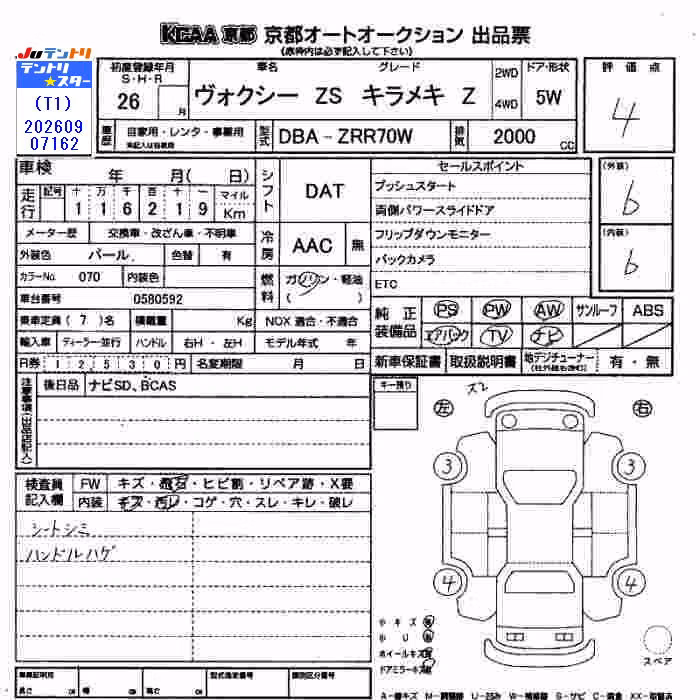 KCAA 京都 京都オートオークション 出品票
(赤枠内は必ず記入して下さい)
JUテントリ
テントリ
★スター
(T1)
202609
07162
初度登録年月
S・H・R
26 月
車名 グレード
ヴォクシー ZS キラメキ Z
2WD
4WD
ドア・形状
5W
評価点
4
車歴
自家用・レンタ・事業用
未記入は自家用
型式
DBA-ZRR70W
排気
2000 CC
車検 年 月( 日)
走行
記号 十 万 千 百 十 一 マイル
1 1 6 2 1 9 Km
シフト
DAT
セールスポイント
プッシュスタート
両側パワースライドドア
フリップダウンモニター
バックカメラ
ETC
(外装)
6
(内装)
6
メーター歴 交換車・改ざん車・不明車
外装色 パール 色替 有
冷房
AAC 無
カラーNo. 070 内装色
車台番号 0580592
燃料
ガソリン・軽油
( )
乗車定員 (7)名 積載量 Kg NOX 適合・不適合
純正装備品
PS PW AW サンルーフ ABS
エアバック TV ナビ
輸入車 ディーラー 並行 ハンドル 右H・左H モデル年式 年
新車保証書 取扱説明書 地デジチューナー 有・無
R券 12530円 名変期限 月 日
注意事項(出品店記入)
後日品 ナビSD、BCAS
キー預り
スレ
左 右
3 3
4 4
検査員記入欄
FW キズ・飛石・ヒビ割・リペア跡・X要
内装 キズ・汚レ・コゲ・穴・スレ・キレ・破レ
シートシミ
ハンドルハゲ
小キズ 有
小U 有
ホイールキズ 有
ドアミラーキズ 有
スペア
車検証明用
長さ cm 幅 cm 高さ cm
型式指定番号 類別区分番号